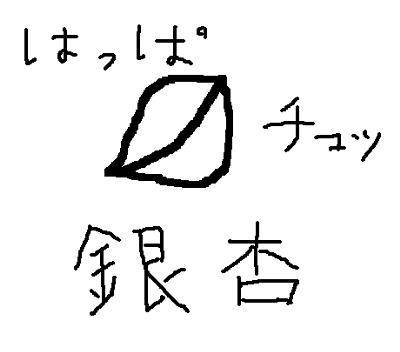 はっぱ
チュッ
銀杏